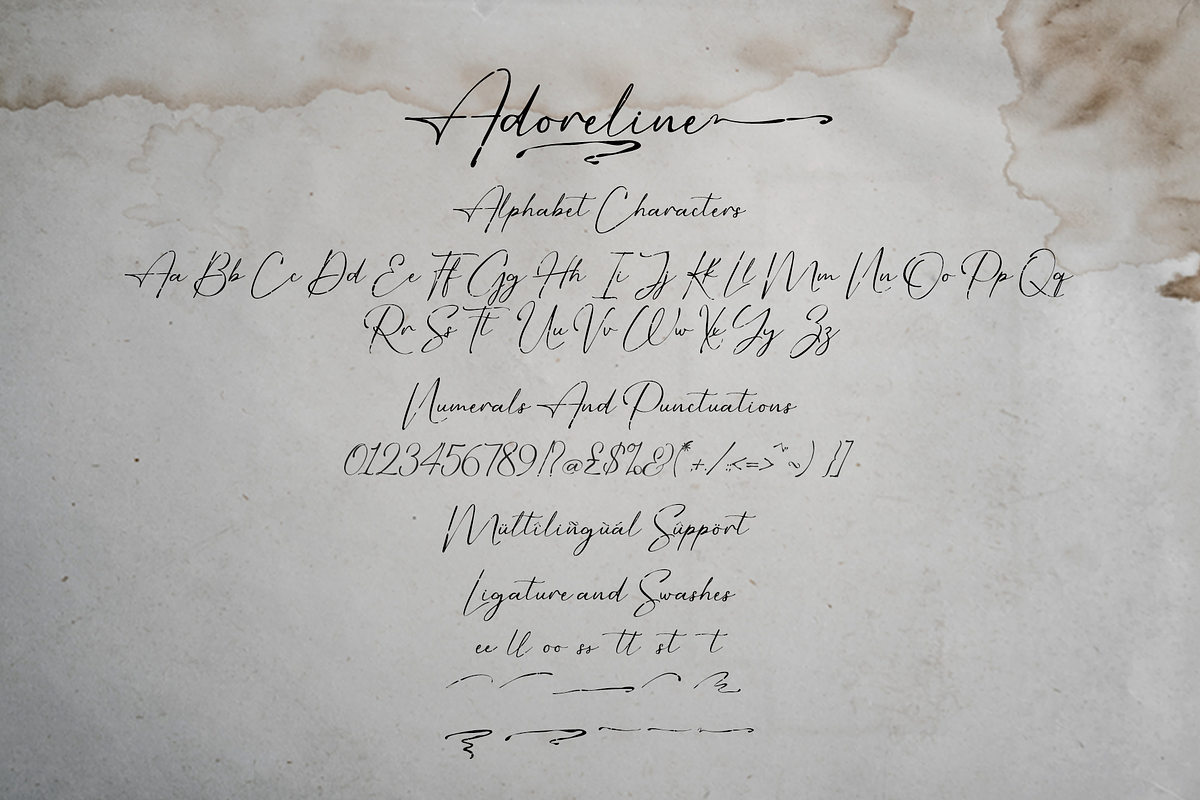 Adoreline
Alphabet Characters
Aa Bb Cc Dd Ee Ff Gg Hh Ii Jj Kk Ll Mm Nn Oo Pp Qq
Rr Ss Tt Uu Vv Ww Xx Yy Zz
Numerals And Punctuations
0123456789!?@£$%&(*+/:;<=>^~) {}[]
Mültîliñgùál Sûppört
Ligature and Swashes
ee ll oo ss tt st t